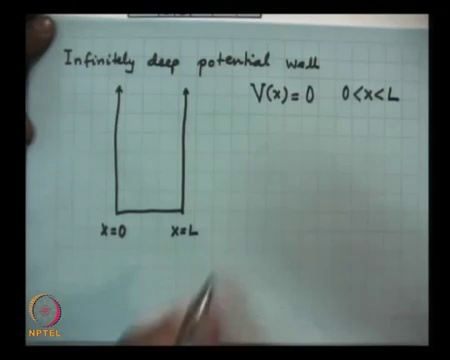 Infinitely deep potential well
V(x) = 0 0 < x < L
x=0 x=L
NPTEL